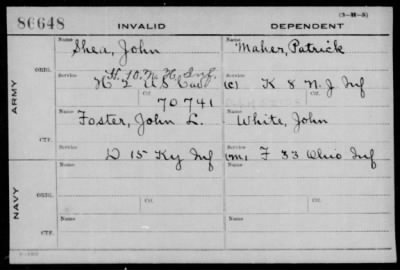 86648 INVALID DEPENDENT (3-H-5)
Name Shea, John Name Maher, Patrick
ORIG. H. 10. N. H. Inf.
Service H 2 U.S. Cav Service (c) K 8 N. J. Inf
Ctf. 70741 Ctf.
ARMY
Name Foster, John L. Name White, John
CTF.
Service D 15 Ky Inf Service (m) F 33 Ohio Inf
Name Name
ORIG.
Service Ctf. Service Ctf.
NAVY
Name Name
CTF.